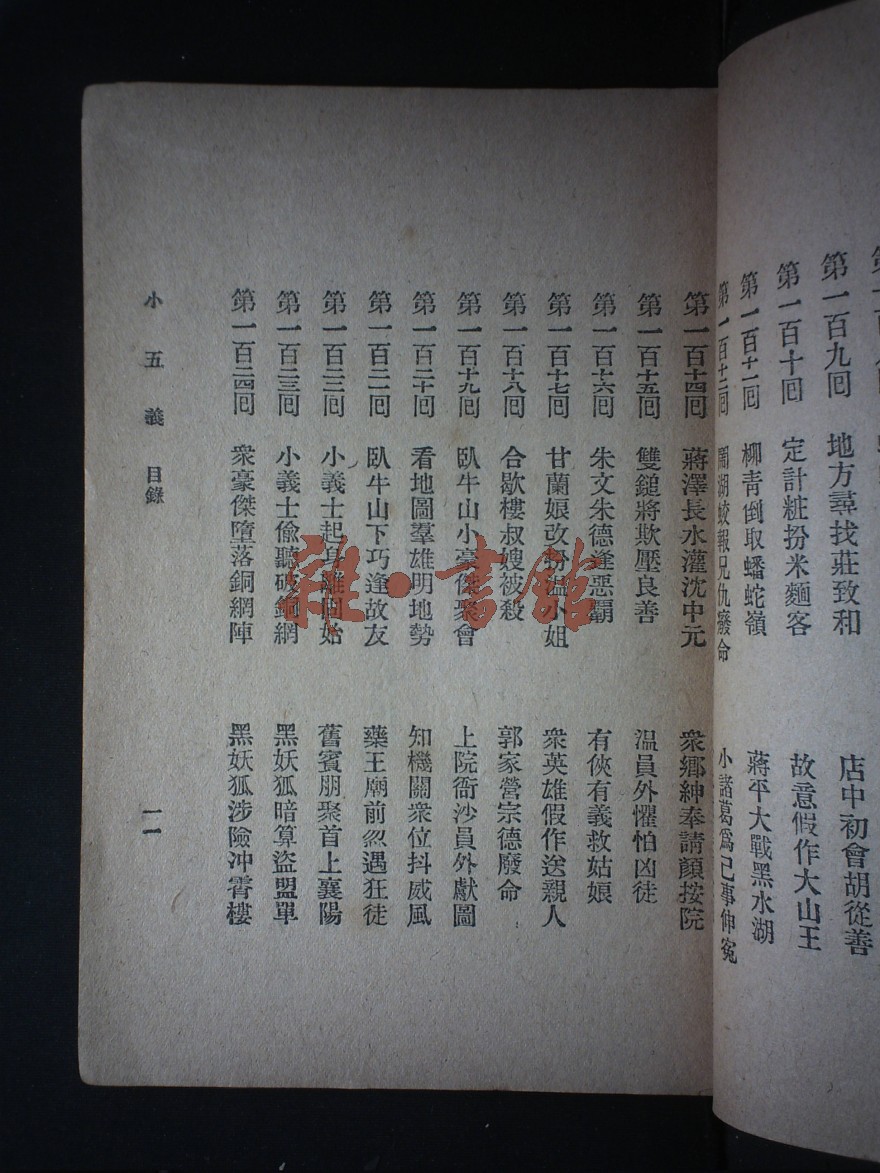 第一百九回 地方尋找莊致和 店中初會胡從善
第一百十回 定計粧扮米麵客 故意假作大山王
第一百十一回 柳青倒取蟠蛇嶺 蔣平大戰黑水湖
第一百十二回 鬧湖蛟報兄仇廢命 小諸葛爲己事伸冤
第一百十四回 蔣澤長水灌沈中元 衆鄉紳奉請顏按院
第一百十五回 雙鎚將欺壓良善 溫員外懼怕凶徒
第一百十六回 朱文朱德逢惡霸 有俠有義救姑娘
第一百十七回 甘蘭娘改扮溫小姐 衆英雄假作送親人
第一百十八回 合歇樓叔嫂被殺 郭家營宗德廢命
第一百十九回 臥牛山小豪傑聚會 上院衙沙員外獻圖
第一百二十回 看地圖羣雄明地勢 知機關衆位抖威風
第一百二一回 臥牛山下巧逢故友 藥王廟前忽遇狂徒
第一百二二回 小義士起身離固始 舊賓朋聚首上襄陽
第一百二三回 小義士偷聽破銅網 黑妖狐暗算盜盟單
第一百二四回 衆豪傑墮落銅網陣 黑妖狐涉險冲霄樓
小五義 目錄 一一
雜·書館